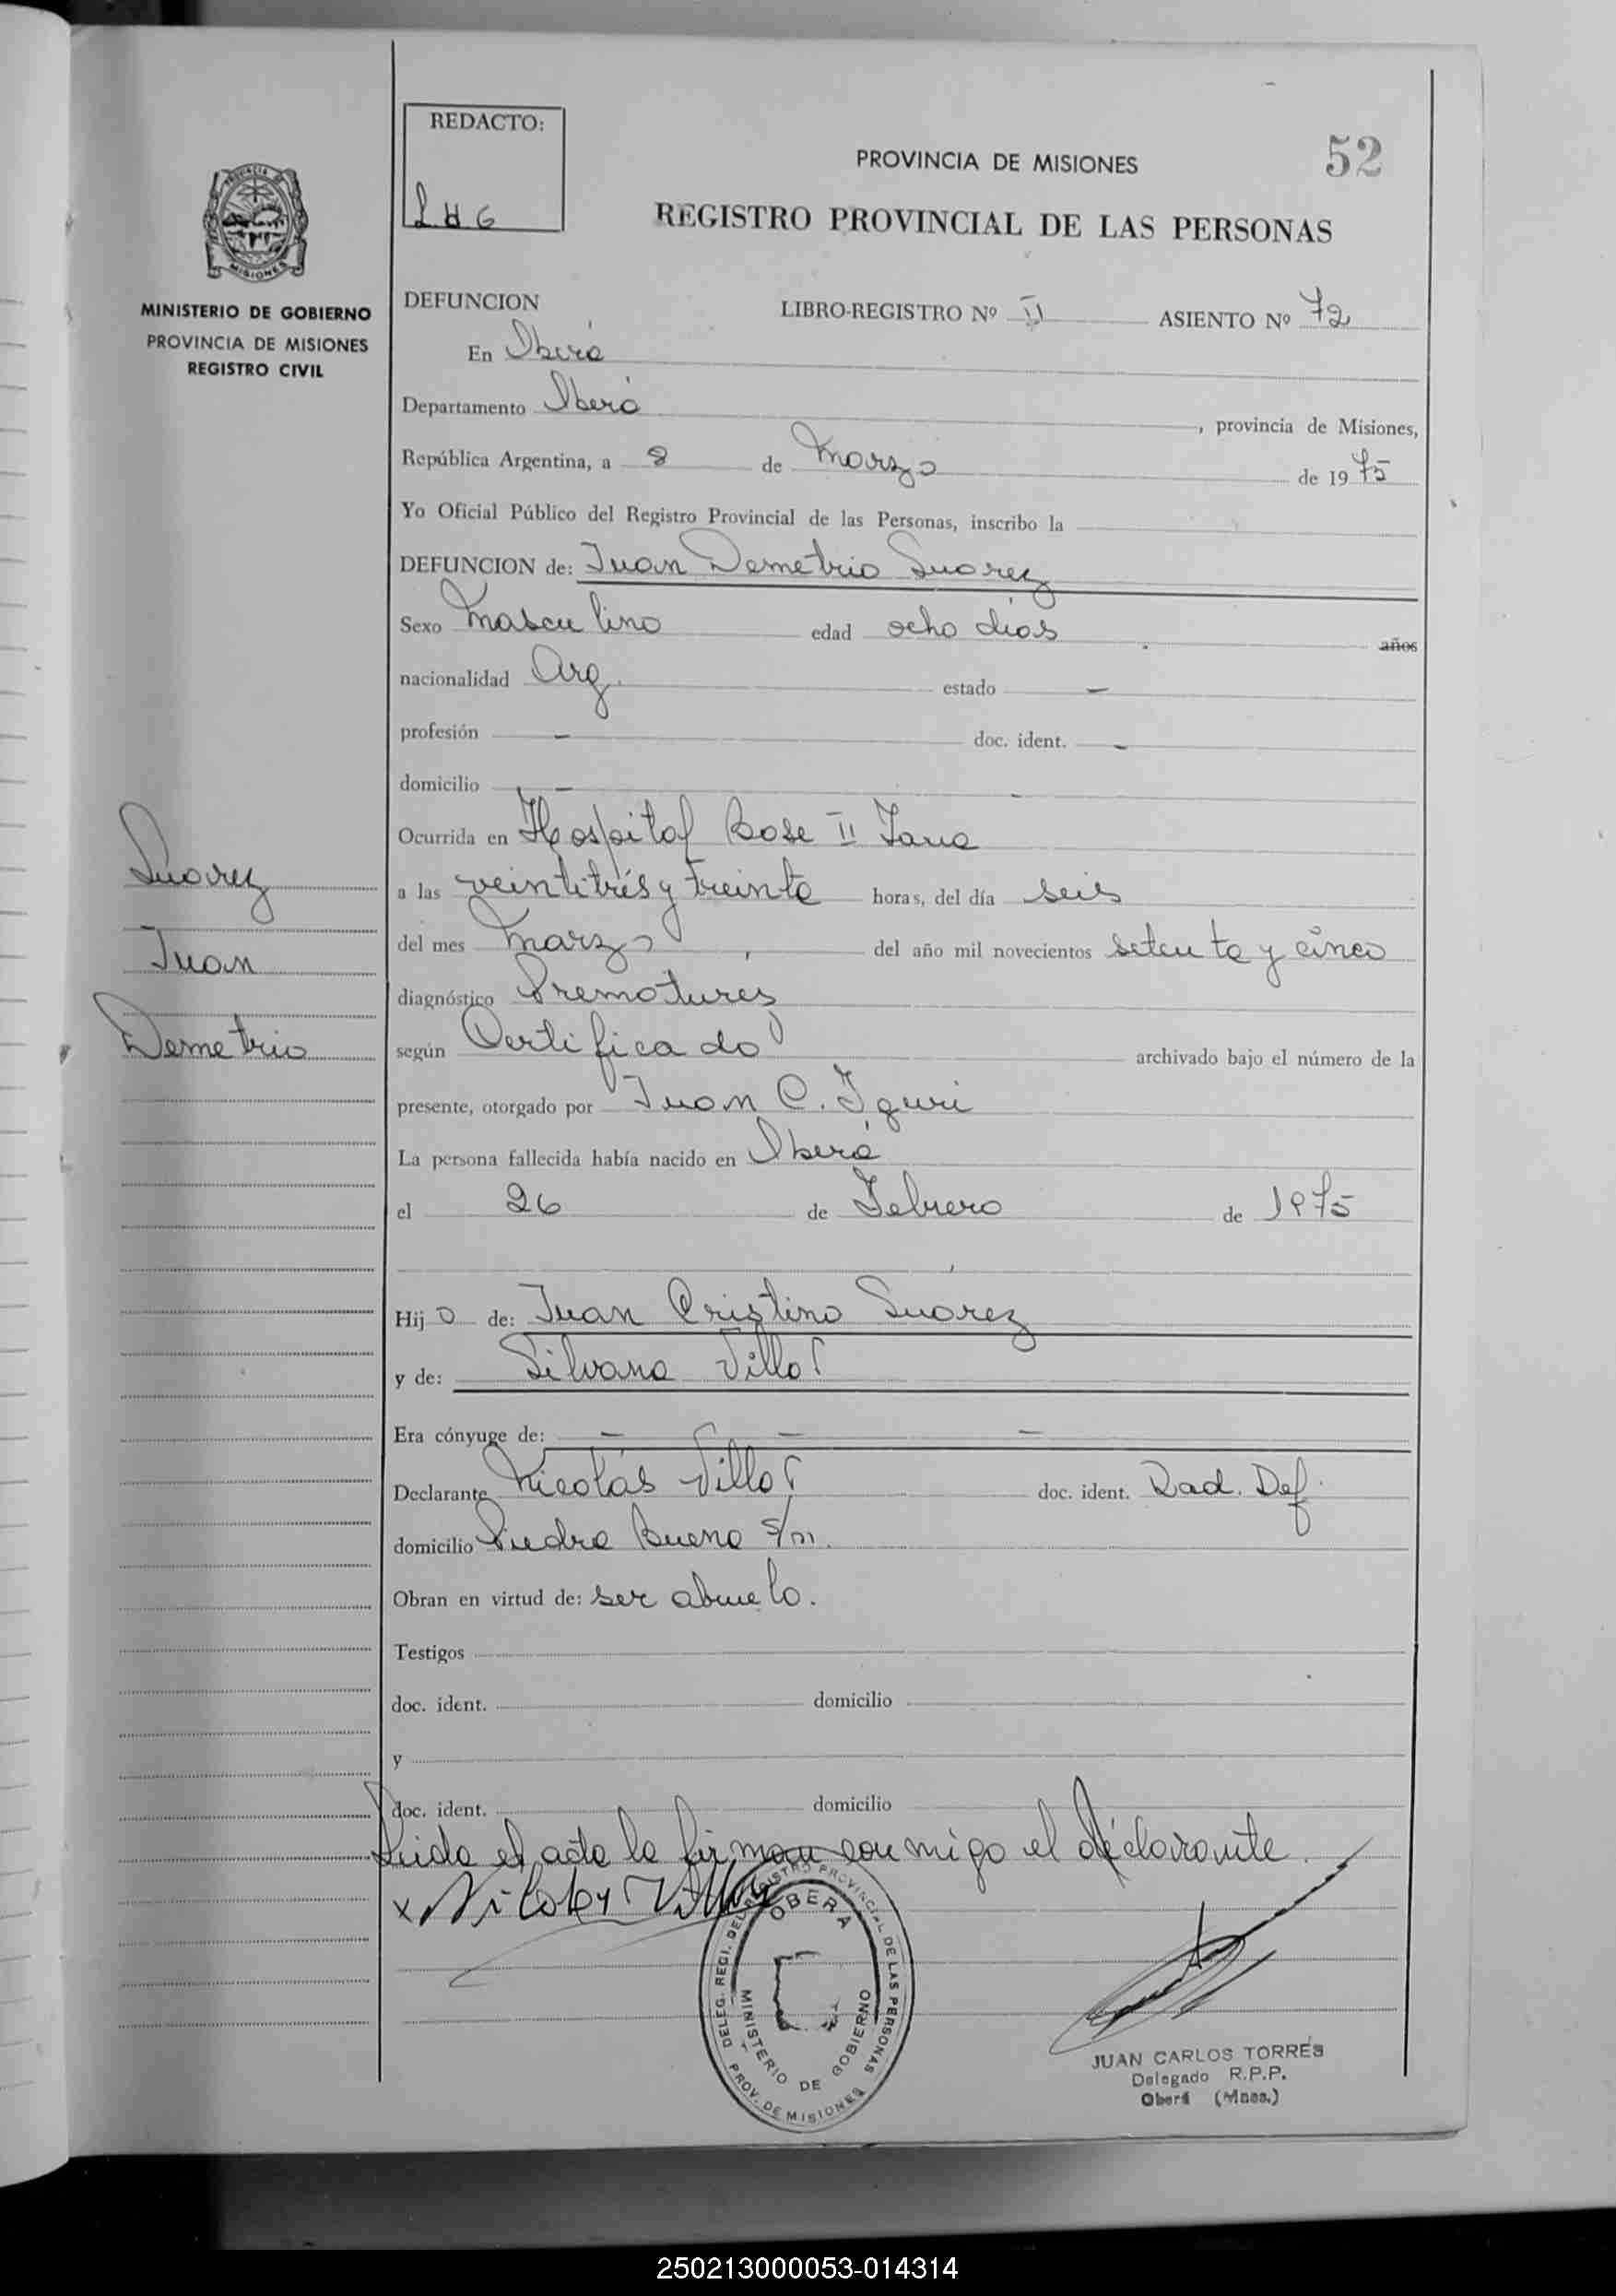 REDACTO:
L H G
52
PROVINCIA DE MISIONES
REGISTRO PROVINCIAL DE LAS PERSONAS
MISIONES
MINISTERIO DE GOBIERNO
PROVINCIA DE MISIONES
REGISTRO CIVIL
DEFUNCION LIBRO-REGISTRO Nº II ASIENTO Nº 72
En Oberá
Departamento Oberá, provincia de Misiones,
República Argentina, a 8 de Marzo de 1975
Yo Oficial Público del Registro Provincial de las Personas, inscribo la
DEFUNCION de: Juan Demetrio Suarez
Sexo Masculino edad ocho días años
nacionalidad Arg. estado —
profesión — doc. ident. —
domicilio —
Ocurrida en Hospital Base II Zona
a las veintitrés y treinta horas, del día seis
del mes Marzo, del año mil novecientos setenta y cinco
diagnóstico Prematurez
según Certificado archivado bajo el número de la
presente, otorgado por Juan C.
La persona fallecida había nacido en Oberá
el 26 de Febrero de 1975
Hijo de: Juan Cristino Suárez
y de: Silvana Villar
Era cónyuge de: — — —
Declarante Nicolás Villar doc. ident. Rad. Def.
domicilio Piedra Buena s/n.
Obran en virtud de: ser abuelo.
Testigos
doc. ident. domicilio
y
doc. ident. domicilio
Leida el acta la firman conmigo el declarante.
Suarez
Juan
Demetrio
x
DELEG. REGI. DEL REGISTRO PROVINCIAL DE LAS PERSONAS
OBERA
MINISTERIO DE GOBIERNO
PROV. DE MISIONES
JUAN CARLOS TORRES
Delegado R.P.P.
Oberá (Mnes.)
250213000053-014314